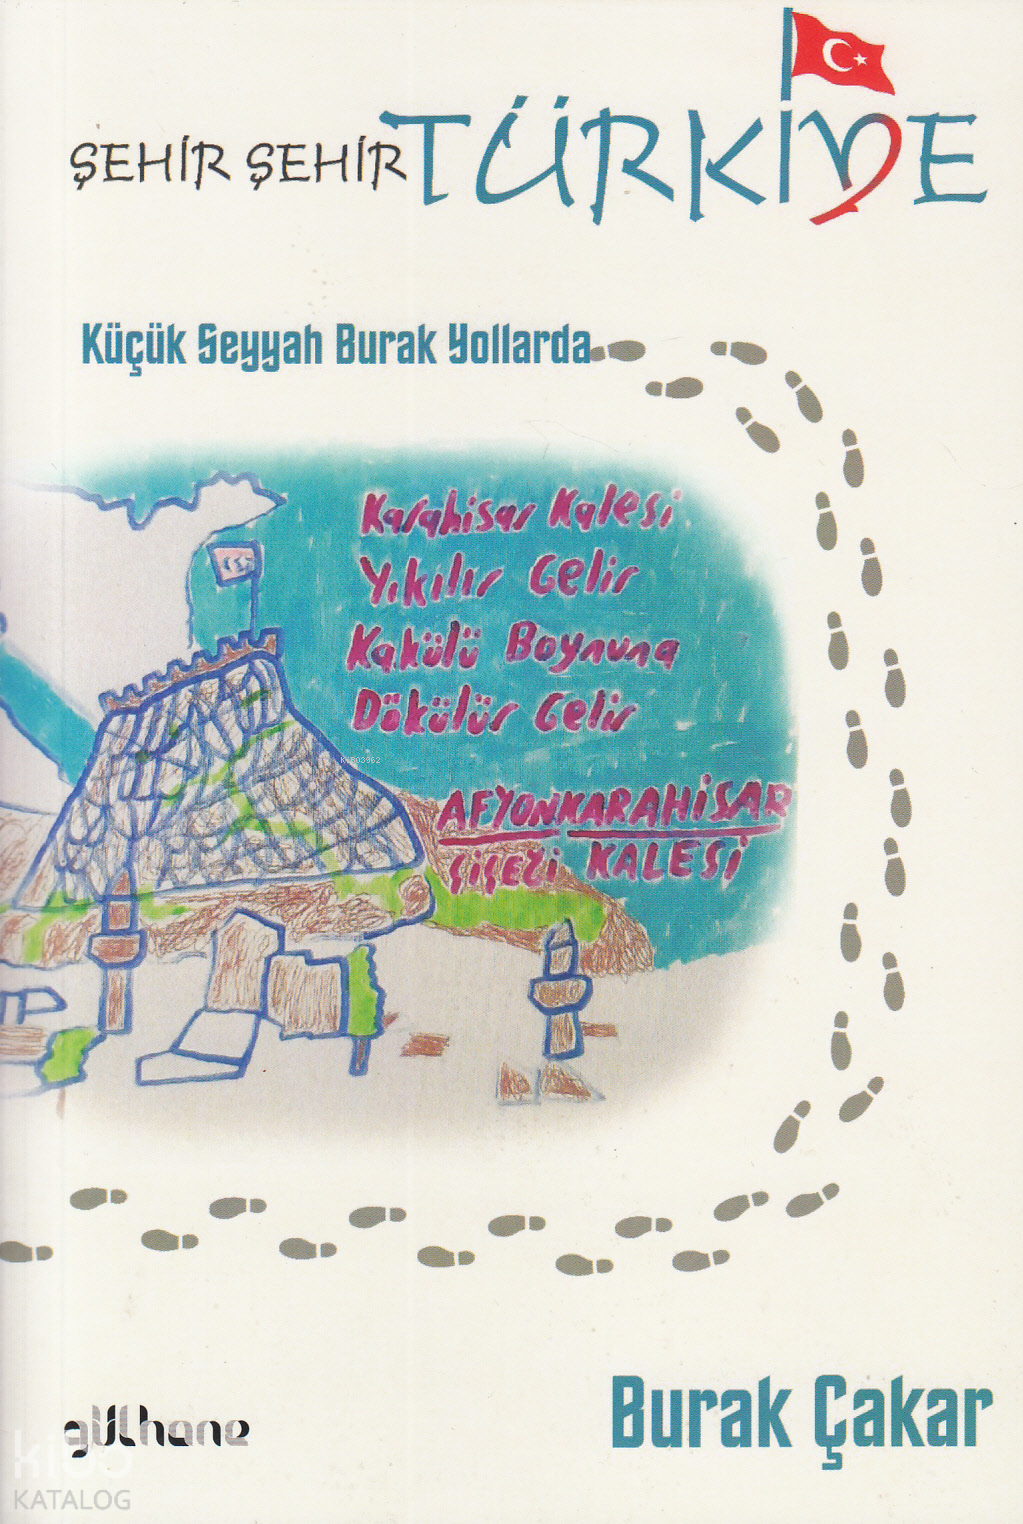 ŞEHİR ŞEHİR TÜRKİYE
Küçük Seyyah Burak Yollarda
Karahisar Kalesi
Yıkılır Gelir
Kakülü Boynuna
Dökülür Gelir
AFYONKARAHİSAR
KALESİ
gülhane
Burak Çakar
KATALOG